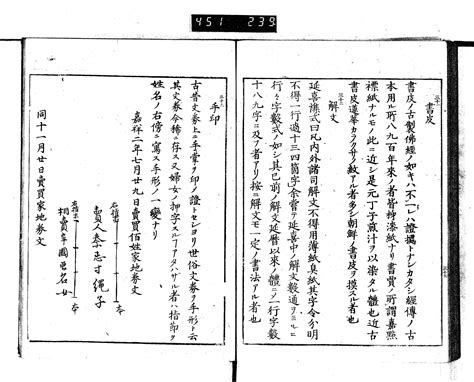 451 239
書皮
書皮ノ古製佛經ノ如キハ不可ノ證據トナシカタシ經傳ノ古
本用ル所八九百年來ノ者皆栁漆紙ナリ書賈ノ所謂嘉
標紙ナルモノ此ニ近シ是元丁子煎汁ヲ以染タル體也近古
書皮蓮華カラクサノ紋アル者多シ朝鮮ノ書皮ヲ摸スル者也
解文
延喜様式曰凡内外諸司解文不得用薄紙臭紙其字令分明
不得一行過十三四箇字余嘗テ延喜中ノ解文數通ヲミルニ
行々字數式ノ如シ其已前ノ解文延暦以來ノ體ニテ一行字數
十八九字ニ及フ者アリ按ニ解文モ一定ノ書法アル者也
手印
古昔文券上ニ手掌ヲ印ノ證トセシヨリ世俗文券ヲ手形ト云
其文券今稀ニ存ス又婦女ノ押字スルコアタハサル者ハ指印ヲ
姓名ノ右傍ニ寫ス手形ノ一變ナリ
嘉祥二年七月廿九日賣買佰姓家地券文
賣人秦忌寸縄子
同十一月廿日賣買家地券文